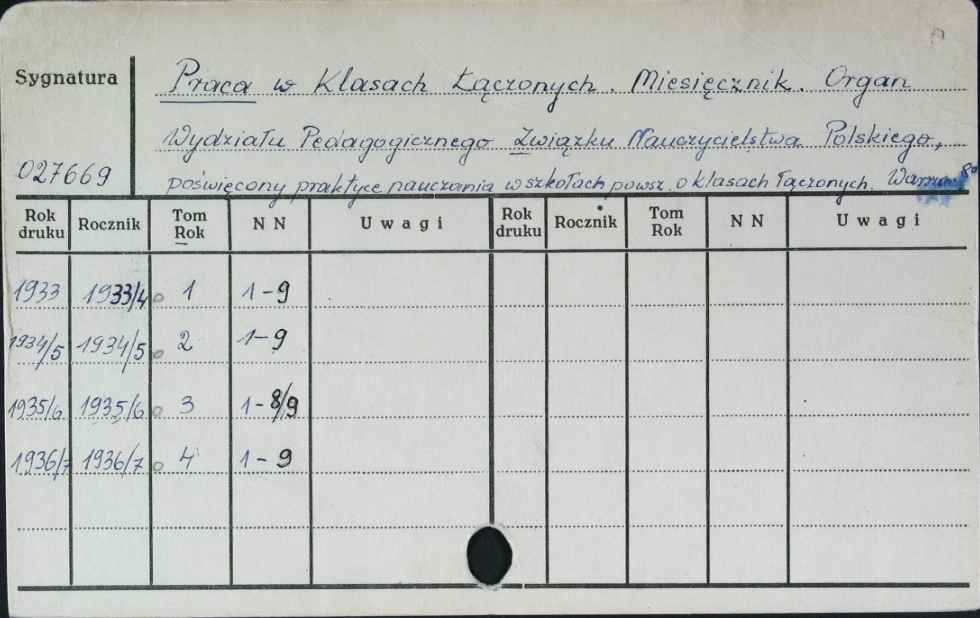 Sygnatura
027669
Praca w Klasach Łączonych. Miesięcznik. Organ
Wydziału Pedagogicznego Związku Nauczycielstwa Polskiego,
poświęcony praktyce nauczania w szkołach powsz. o klasach łączonych.
Rok druku Rocznik Tom Rok N N Uwagi Rok druku Rocznik Tom Rok N N Uwagi
1933 1933/4 1 1-9
1934/5 1934/5 2 1-9
1935/6 1935/6 3 1-8/9
1936/7 1936/7 4 1-9